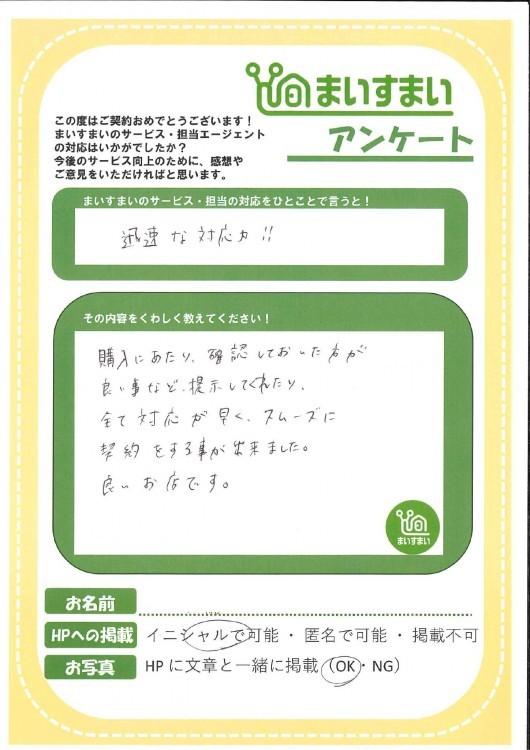 まいすまい
アンケート
この度はご契約おめでとうございます！
まいすまいのサービス・担当エージェント
の対応はいかがでしたか？
今後のサービス向上のために、感想や
ご意見をいただければと思います。
まいすまいのサービス・担当の対応をひとことで言うと！
迅速な対応力!!
その内容をくわしく教えてください！
購入にあたり、確認しておいた方が
良い事など、提示してくれたり、
全て対応が早く、スムーズに
契約をする事が出来ました。
良いお店です。
まいすまい
お名前
HPへの掲載 イニシャルで可能・匿名で可能・掲載不可
お写真 HPに文章と一緒に掲載（OK・NG）